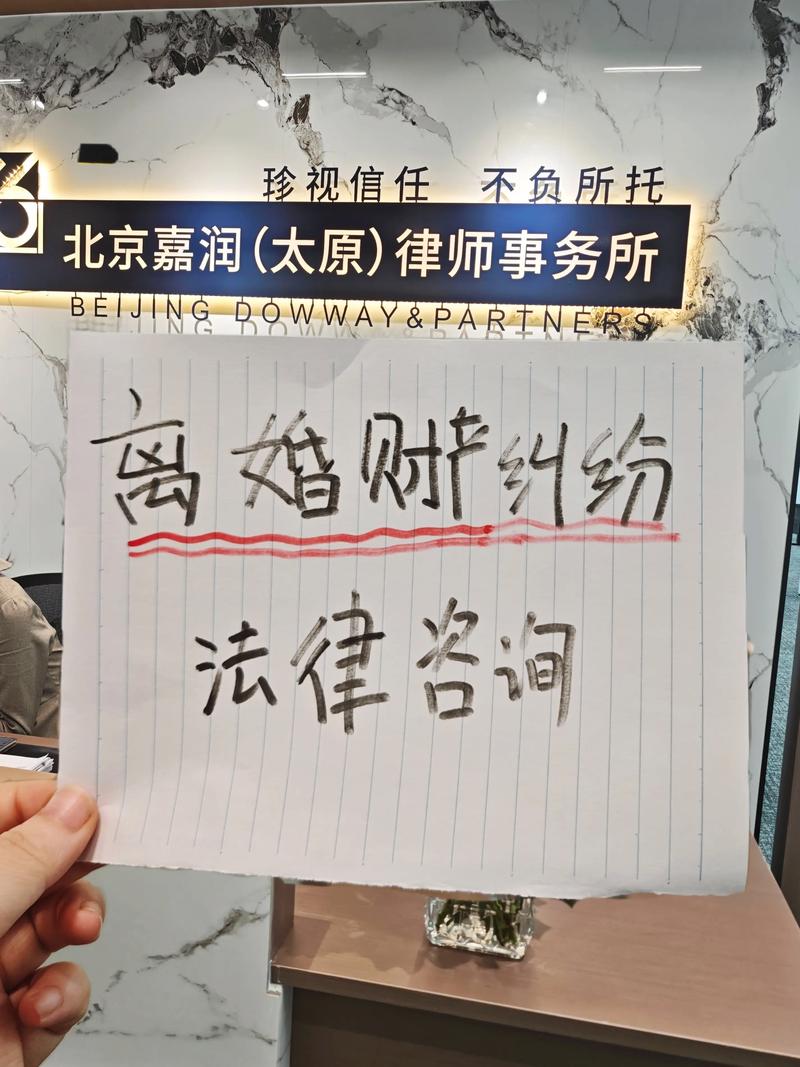 珍视信任 不负所托
北京嘉润(太原)律师事务所
BEIJING DOWWAY&PARTNERS
离婚财产纠纷
法律咨询